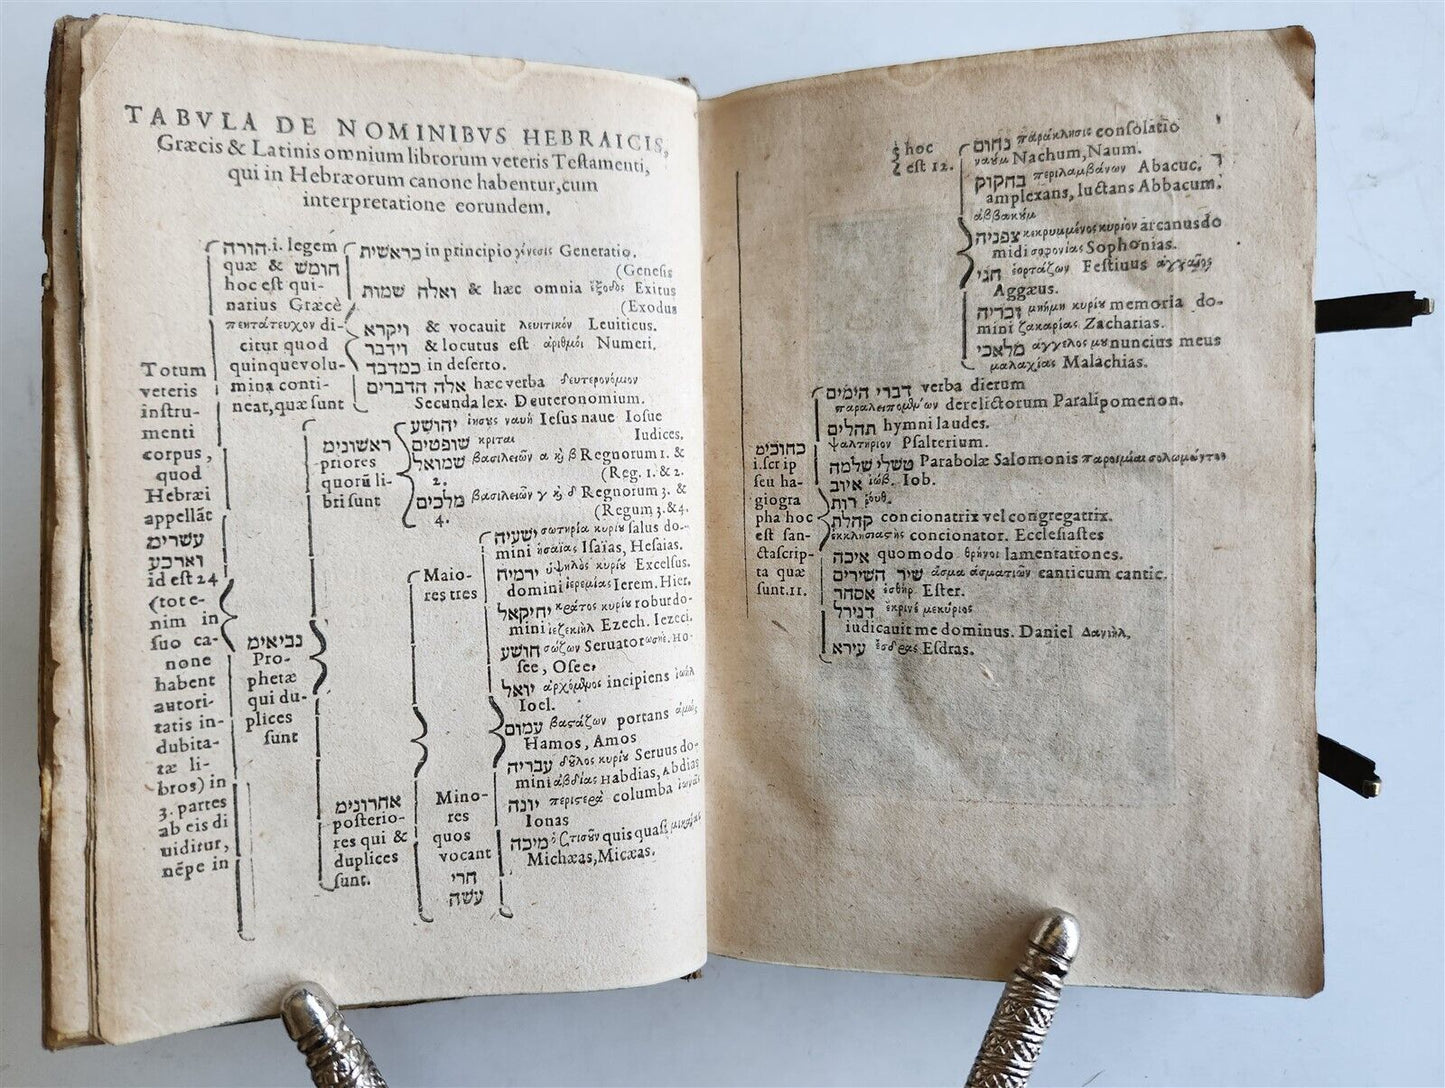 TABVLA DE NOMINIBVS HEBRAICIS,
Græcis & Latinis omnium librorum veteris Testamenti,
qui in Hebræorum canone habentur, cum
interpretatione eorundem.
Totum
veteris
instru-
menti
corpus,
quod
Hebræi
appellãt
עשרים
וארבע
id est 24
(tot e-
nim in
suo ca-
none
habent
autori-
tatis in-
dubita-
tæ li-
bros) in
3. partes
ab eis di
uiditur,
nẽpe in
הורה .i. legem
quæ & חומש
hoc est qui-
narius Græcè
πεντάτευχον di-
citur quod
quinque volu-
mina conti-
neat, quæ sunt
בראשית in principio γένεσις Generatio.
(Genesis
ואלה שמות & hæc omnia ἔξοδος Exitus
(Exodus
ויקרא & vocauit λευιτικόν Leuiticus.
וידבר & locutus est ἀριθμόι Numeri.
במדבר in deserto.
אלה הדברים hæc verba δευτερονόμιον
Secunda lex. Deuteronomium.
נביאימ
Pro-
phetæ
qui du-
plices
sunt
ראשונימ
priores
quorũ li-
bri sunt
יהושע ἰησοῦς ναυῆ Iesus naue Iosue
שופטים κριταὶ Iudices.
שמואל βασιλειῶν α κỳ β Regnorum 1. &
2. (Reg. 1. & 2.
מלכים βασιλειῶν γ κỳ δ Regnorum 3. &
4. (Regum 3. & 4.
אחרונימ
posterio-
res qui &
duplices
sunt.
Maio-
res tres
ישעיה σωτηρία κυρίου salus do-
mini ἡσαίας Isaias, Hesaias.
ירמיה ὑψηλὸς κυρίου Excelsus.
domini ἱερεμίας Ierem. Hier.
יחיקאל κράτος κυρίου robur do-
mini ἰεζεκιὴλ Ezech. Iezeci.
Mino-
res
quos
vocant
תרי
עשה
הושע σώζων Seruator ωσηέ. Ho-
see, Osee.
יואל ἀρχόμενος incipiens ἰωὴλ
Ioel.
עמום βαστάζων portans ἀμὼς
Hamos, Amos
עבריה δοῦλος κυρίου Seruus do-
mini ἀβδίας Habdias, Abdias
יונה περιστερὰ columba ἰωνᾶς
Ionas
מיכה ὁζτισοῦν quis quasi μιχαίας
Michæas, Micæas.
hoc
est 12.
נחום παράκλησις consolatio
ναοὺμ Nachum, Naum.
בחקוק περιλαμβάνων Abacuc.
amplexans, luctans Abbacum.
ἀββακοὺμ
צפניה κεκρυμμένος κυρίου arcanus do
midi σοφονίας Sophonias.
חגי ἑορτάζων Festiuus ἀγγαῖος
Aggæus.
זבריה μνήμη κυρίου memoria do-
mini ζακαρίας Zacharias.
מלאכי ἄγγελος μου nuncius meus
μαλαχίας Malachias.
כתובימ
i. scrip
seu ha-
giogra
pha hoc
est san-
cta scrip-
ta quæ
sunt. 11.
דברי הימים verba dierum
παραλειπομένων derelictorum Paralipomenon.
תהלים hymni laudes.
ψαλτήριον Psalterium.
משלי שלמה Parabolæ Salomonis παροιμίαι σολωμόντος
איוב ἰώβ. Iob.
רות ῥουθ.
קהלת concionatrix vel congregatrix.
ἐκκλησιαστὴς concionator. Ecclesiastes
איכה quomodo θρῆνοι lamentationes.
שיר השירים ἆσμα ἀσματῶν canticum cantic.
אסתר ἐσθὴρ Ester.
דנירל ἐκρινέ με κύριος
iudicauit me dominus. Daniel Δανιὴλ,
עירא ἔσδρας Esdras.